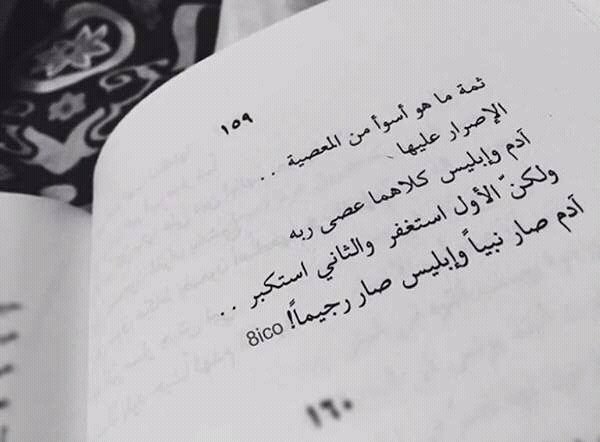 ١٥٩
ثمة ما هو أسوأ من المعصية . .
الإصرار عليها
آدم وإبليس كلاهما عصى ربه
ولكنّ الأول استغفر والثاني استكبر . .
آدم صار نبياً وإبليس صار رجيماً!
8ico
١٦٠